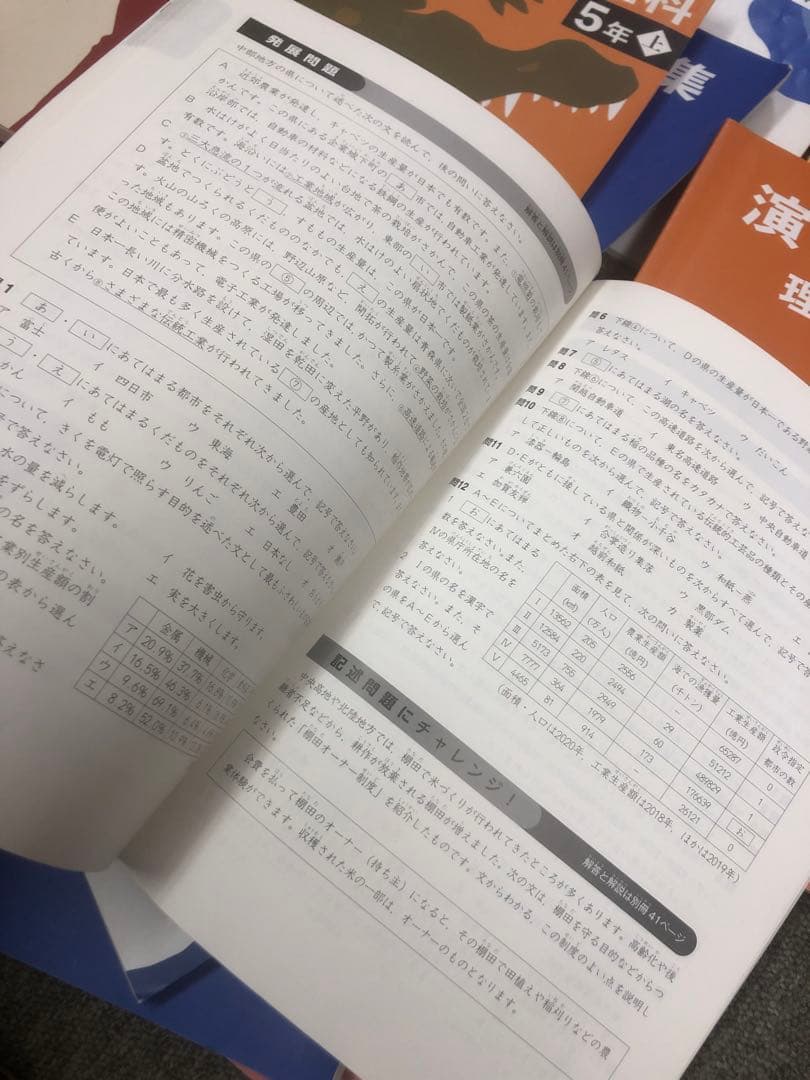 科
5年上
集
演
理
発展問題
解答と解説は別冊41
中部地方の県について述べた次の文を読んで、後の問いに答えなさい。
A 近郊農業が発達し、キャベツの生産量が日本でも有数です。また、
かんです。この県にある企業城下町の あ 市では、自動車工業が発達しています。
沿岸部では、自動車の材料などになる鉄鋼の生産が行われています。
B 水はけがよく、日当たりのよい台地で茶の栽培がさかんで、この県の茶の生産量
有数です。海沿いには 工業地域が広がり、東部の い 市では製紙業がさかん
C 三大急流の1つが流れる盆地では、水はけのよい扇状地でくだものが
す。とくにぶどうと う 、すももの生産量は、この県が日本一です。
D 盆地でつくられるくだもののなかでも、 え の生産量は青森県に次いで
す。火山の山ろくの高原には、野辺山原など、開拓が行われて 野菜の栽培
った地域もあります。この県の ⓟ の周辺では、かつて製糸業がさかえました
この地域には精密機械をつくる工場が移ってきました。さらに、 高速道路
便がよいこともあって、電子工業が発達しました。
E 日本一長い川に分水路を設けて、湿田を乾田に変えた平野があり、
ています。日本で最も多く生産されている の産地としても知られています
古くから さまざまな伝統工業が行われてきました。
1 あ ・ い にあてはまる都市をそれぞれ次から選んで、記号で答えなさい
ア 富士 イ 四日市 ウ 東海 エ 豊田 オ
う ・ え にあてはまるくだものをそれぞれ次から選んで、記号で答えなさい
かん イ もも ウ りんご エ 日本なし オ
について、きくを電灯で照らす目的を述べた文として最も
子で答えなさい。
水の量を減らします。 イ 花を害虫から守ります。
をずらします。 エ 実を大きくします。
の名を答えなさい。
業別生産額の割
の表から選ん
答えなさ
金属 機械 化学
ア 20.9% 37.7%
イ 16.5% 46.3%
ウ 9.6% 69.1%
エ 8.2% 52.0%
問6 下線 について、Dの県の生産量が日本一である
答えなさい。
ア レタス イ キャベツ ウ だいこん
問7 にあてはまる湖の名を答えなさい。
問8 下線 について、この高速道路を次から選んで、記号で答え
ア 関越自動車道 イ 東名高速道路 ウ 中央自動車
問9 にあてはまる稲の品種の名をカタカナで答えなさい。
問10 下線 について、Eの県で生産されている伝統的工芸品の種類とその
して正しいものを次から選んで、記号で答えなさい。
ア 漆器－輪島 イ 織物－小千谷 ウ 和紙－燕
問11 D・Eがともに接している県と関係が深いものを次からすべて選んで、記号で答
ア 兼六園 イ 合掌造り集落 ウ 黒部ダム
エ 加賀友禅 オ 越前和紙 カ 製薬
問12 A～Eについてまとめた右下の表を見て、次の問いに答えなさい。
1 お にあてはまる
数を答えなさい。また、
Ⅳの県庁所在地の名を
答えなさい。
2 Ⅰの県の名を漢字で
答えなさい。また、そ
の県をA～Eから選ん
で、記号で答えなさい。
面積(km²) 人口(万人) 農業生産額(億円) 海での漁獲量(千トン) 工業生産額(億円) 政令指定都市の数
Ⅰ 13562 205 2556 － 65287 0
Ⅱ 12584 220 2494 29 51212 1
Ⅲ 5173 755 2949 60 487829 1
Ⅳ 7777 364 1979 173 176639 お
Ⅴ 4465 81 914 － 26121 0
(面積・人口は2020年、工業生産額は2018年、ほかは2019年)
記述問題にチャレンジ!
解答と解説は別冊41ページ
中央高地や北陸地方では、棚田で米づくりが行われてきたところが多くあります。高齢化や後
継者不足などから、耕作が放棄される棚田が増えました。次の文は、棚田を守る目的などからつ
くられた「棚田オーナー制度」を紹介したものです。文からわかる、この制度のよい点を説明し
なさい。
会費を払って棚田のオーナー(持ち主)になると、その棚田で田植えや稲刈りなどの農
業体験ができます。収穫された米の一部は、オーナーのものとなります。